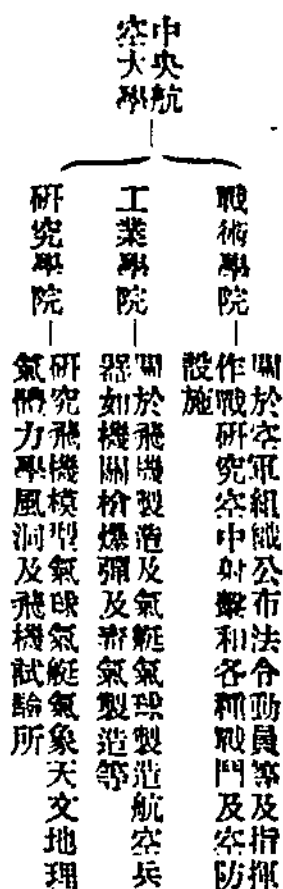 中央航
空大學
戰術學院
關於空軍組織公布法令動員等及指揮
作戰研究空中射擊和各種戰鬥及空防
設施
工業學院
關於飛機製造及氣艇氣球製造航空兵
器如機關槍爆彈及毒氣製造等
研究學院
研究飛機模型氣球氣艇氣象天文地理
氣體力學風洞及飛機試驗所